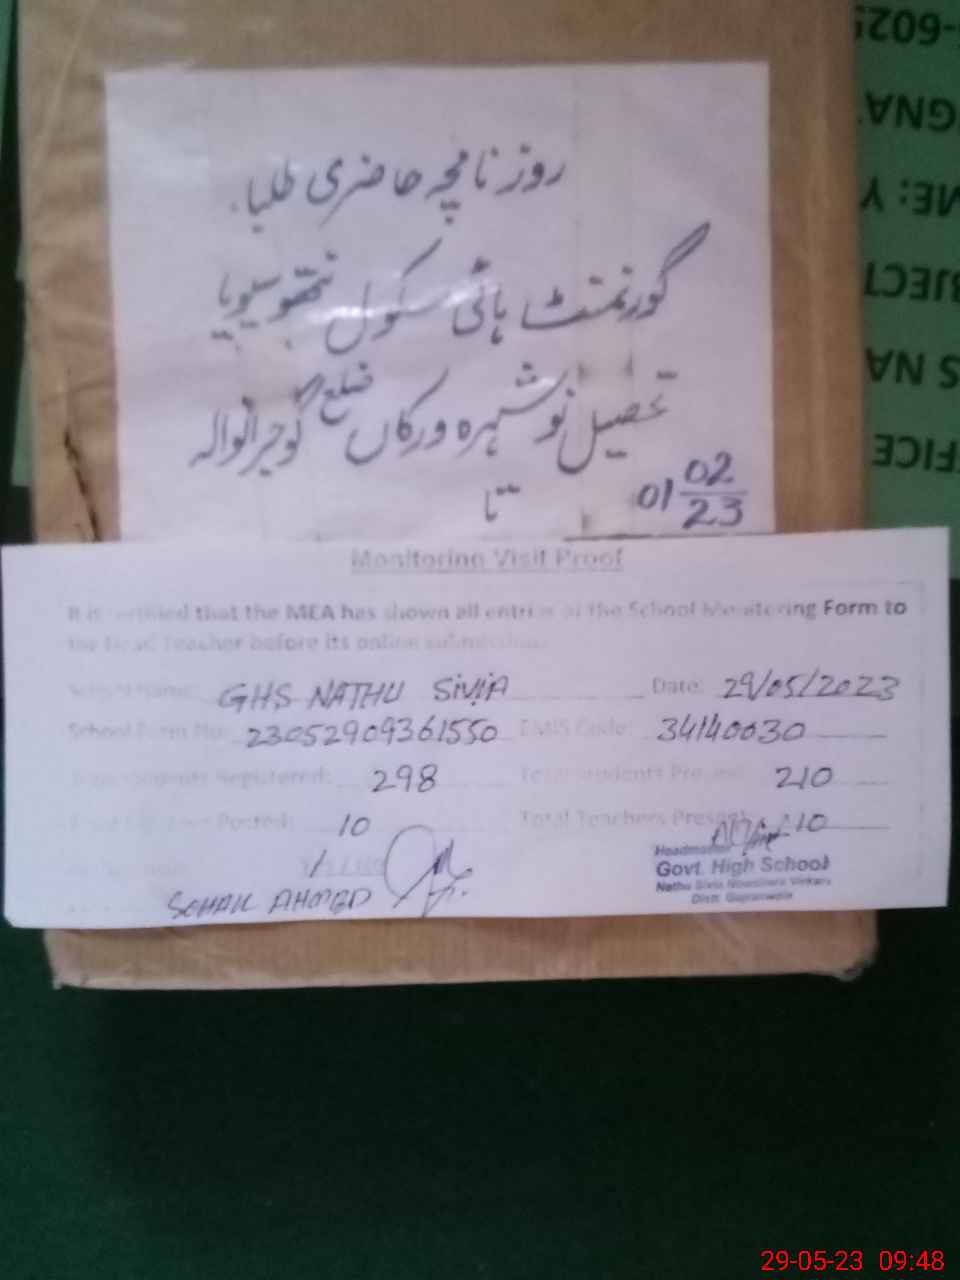 روزنامچہ حاضری طلبا۔
گورنمنٹ ہائی سکول نتھو سیویا
تحصیل نوشہرہ ورکاں ضلع گوجرانوالہ
01 02/23
تا
Monitoring Visit Proof
It is certified that the MEA has shown all entries of the School Monitoring Form to
the Head Teacher before its online submission.
School Name: GHS NATHU SIVIA Date: 29/05/2023
School Form No: 23052909361550 EMIS Code: 34140030
Total Students Registered: 298 Total Students Present: 210
Posted: 10 Total Teachers Present: 10
SOHAIL AHMED
Headmaster
Govt. High School
Nathu Sivia Noshera Virkan
Distt. Gujranwala
-6025
GNA
ME: Y
BJECT
S NA
FICE
29-05-23 09:48